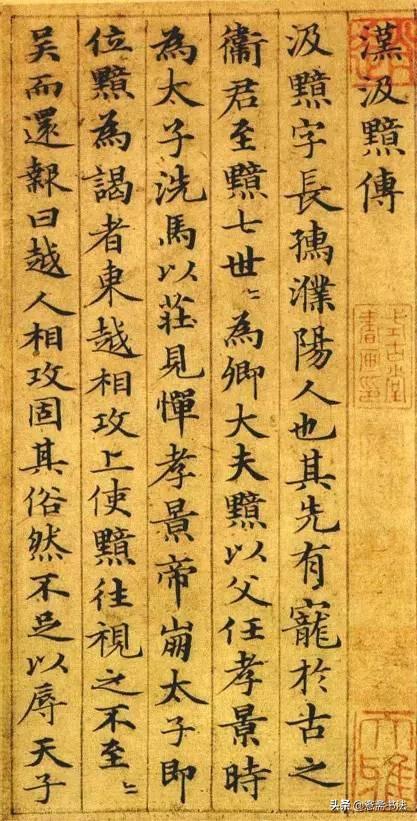 漢汲黯傳
汲黯字長孺濮陽人也其先有寵於古之
衛君至黯七世〻為卿大夫黯以父任孝景時
為太子洗馬以莊見憚孝景帝崩太子即
位黯為謁者東越相攻上使黯往視之不至〻
吴而還報曰越人相攻固其俗然不足以辱天子
头条 @斋书法